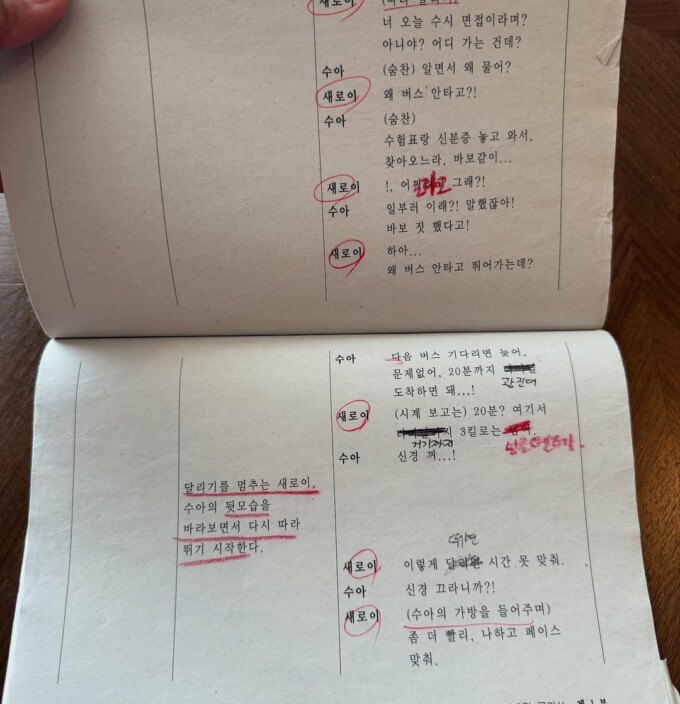 새로이
너 오늘 수시 면접이라며?
아니야? 어디 가는 건데?
수아 (숨찬) 알면서 왜 물어?
새로이 왜 버스 안타고?!
수아 (숨찬)
수험표랑 신분증 놓고 와서,
찾아오느라, 바보같이...
새로이 !, 그래?!
수아 일부러 이래?! 말했잖아!
바보 짓 했다고!
새로이 하아...
왜 버스 안타고 뛰어가는데?
수아 다음 버스 기다리면 늦어.
문제없어, 20분까지
도착하면 돼...!
새로이 (시계 보고는) 20분? 여기서
거기까지
3킬로는
수아 신경 꺼...!
달리기를 멈추는 새로이.
수아의 뒷모습을
바라보면서 다시 따라
뛰기 시작한다.
뛰면
새로이 이렇게 시간 못 맞춰.
수아 신경 끄라니까?!
새로이 (수아의 가방을 들어주며)
좀 더 빨리, 나하고 페이스
맞춰.